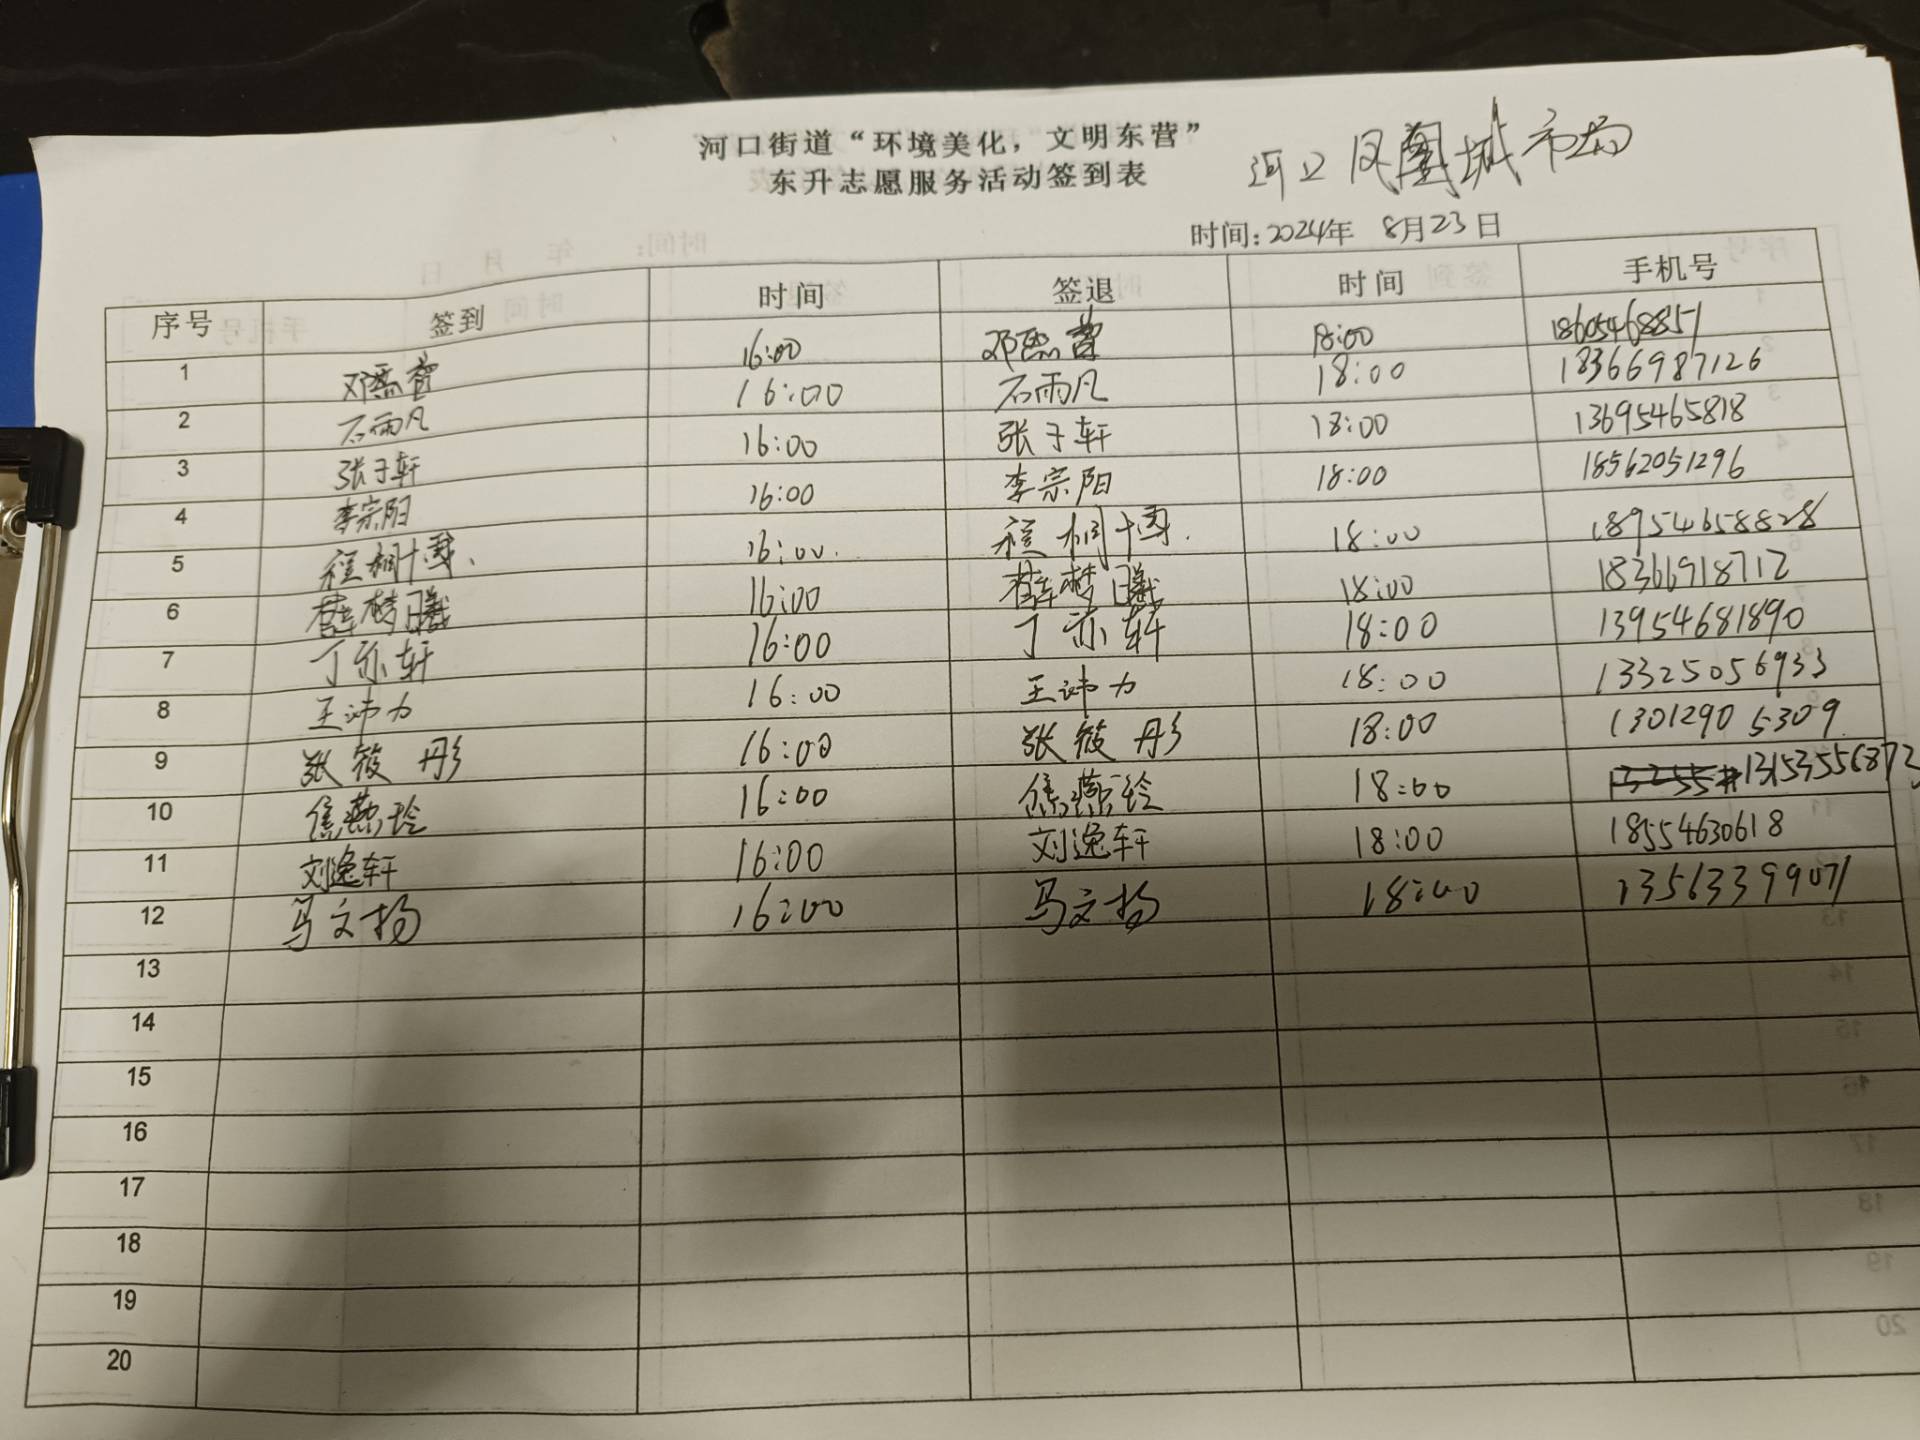 河口街道“环境美化，文明东营”
东升志愿服务活动签到表
河口凤凰城市场
时间：2024年 8月23日
序号 签到 时间 签退 时间 手机号
1 邓 16:00 邓 18:00 18605468851
2 石雨凡 16:00 石雨凡 18:00 18366987126
3 张子轩 16:00 张子轩 18:00 13695465818
4 李宗阳 16:00 李宗阳 18:00 18562051296
5 程桐 16:00. 程桐 18:00 18954658828
6 薛梦曦 16:00 薛梦曦 18:00 18366918712
7 丁亦轩 16:00 丁亦轩 18:00 13954681890
8 王 力 16:00 王 力 18:00 13325056933
9 张筱彤 16:00 张筱彤 18:00 13012905309
10 焦燕玲 16:00 焦燕玲 18:00 13153556872
11 刘逸轩 16:00 刘逸轩 18:00 18554630618
12 马文扬 16:00 马文扬 18:00 13563399071
13
14
15
16
17
18
19
20